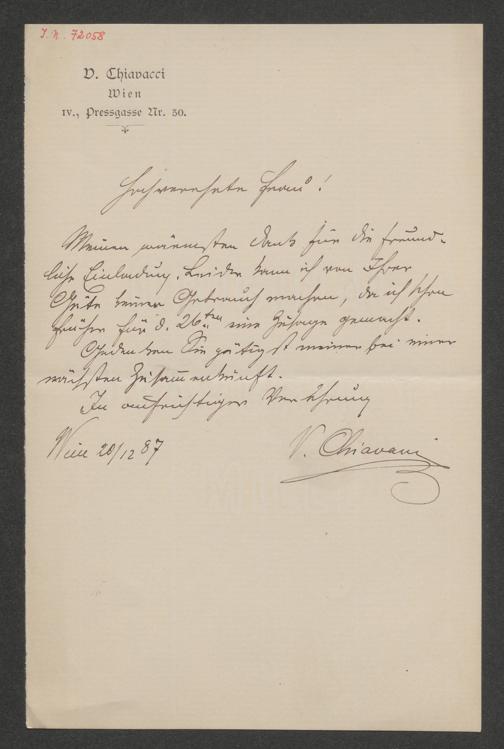 I. N. 72058
V. Chiavacci
Wien
IV., Pressgasse Nr. 30.
Hochverehrte Frau!
Meinen wärmsten Dank für die freund-
liche Einladung. Leider kann ich von Ihrer
Güte keinen Gebrauch machen, da ich schon
früher für d. 26ten eine Zusage gemacht.
Gedenken Sie gütigst meiner bei einer
nächsten Zusammenkunft.
In aufrichtiger Verehrung
Wien 20/12 87
V. Chiavacci